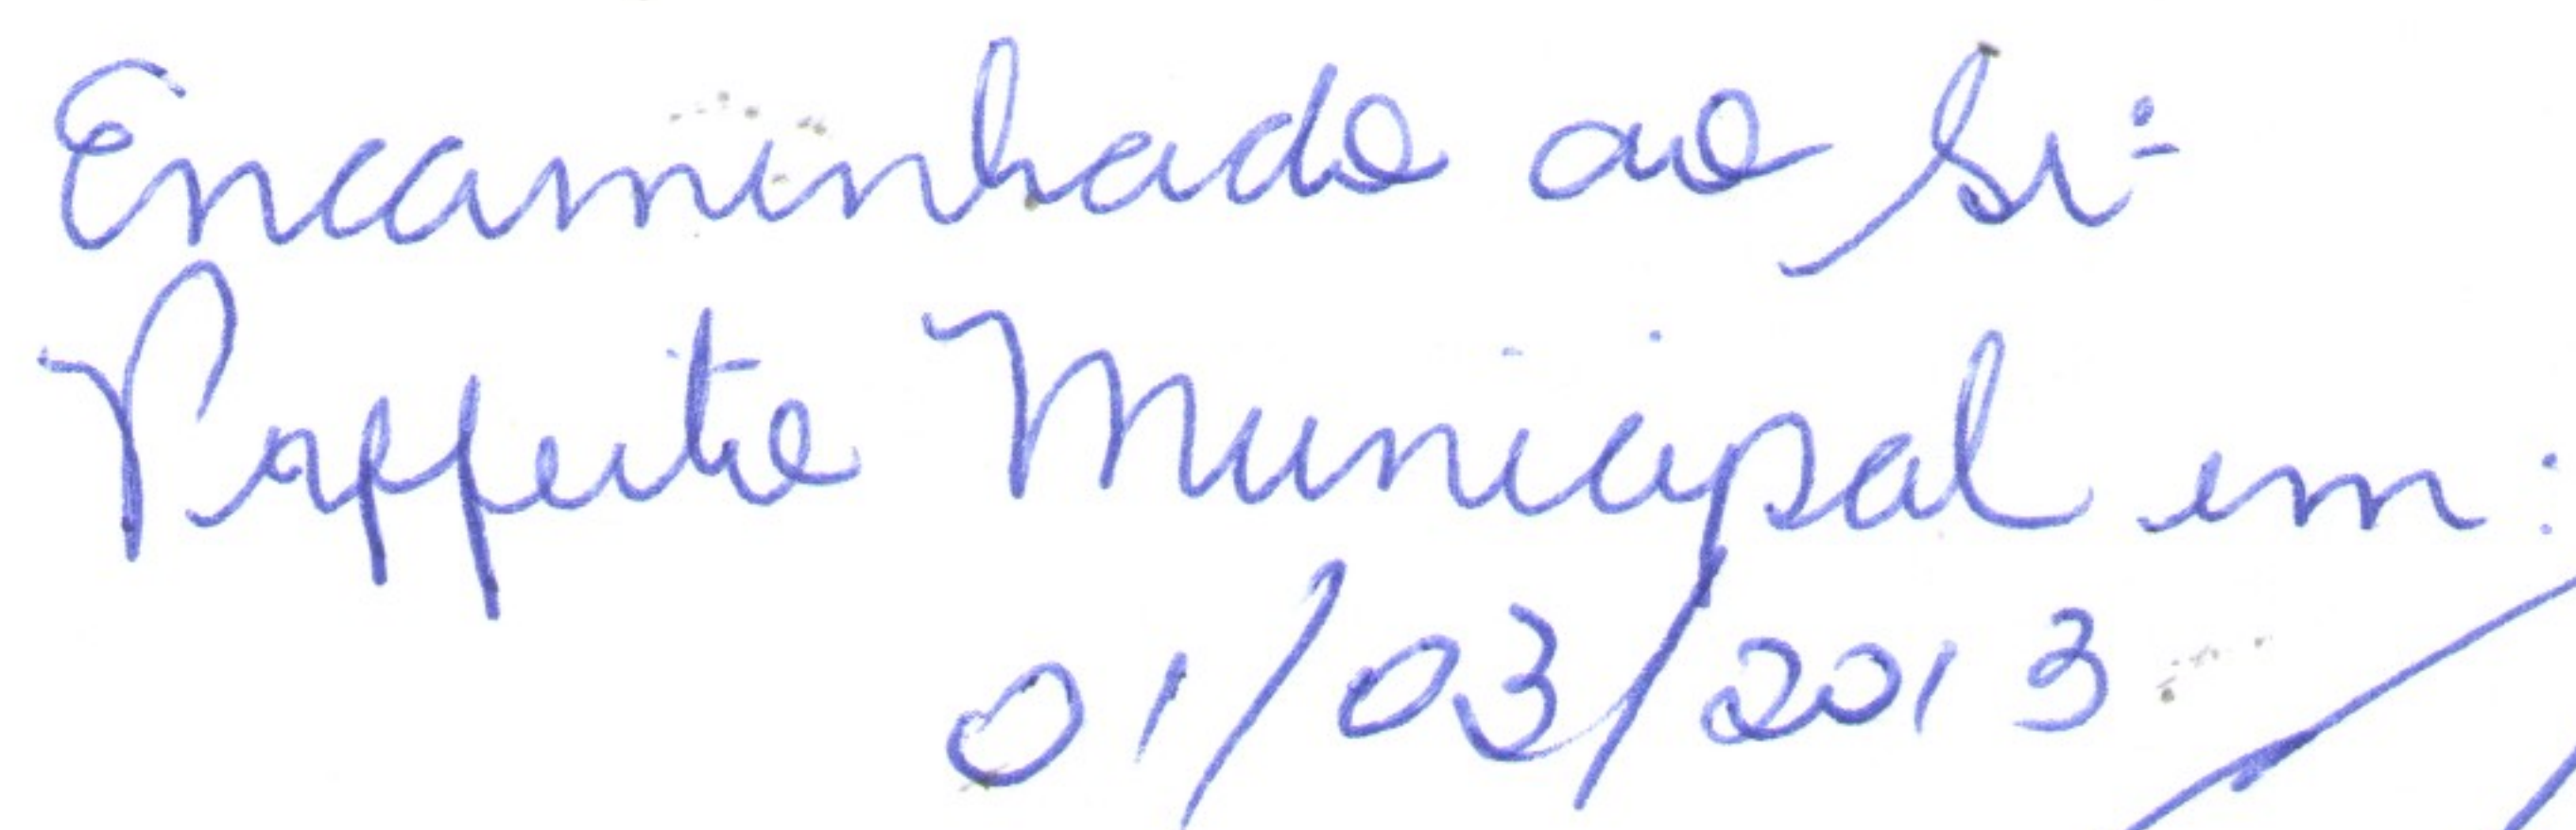 Encaminhado ao Sr.
Prefeito Municipal em:
01/03/2013